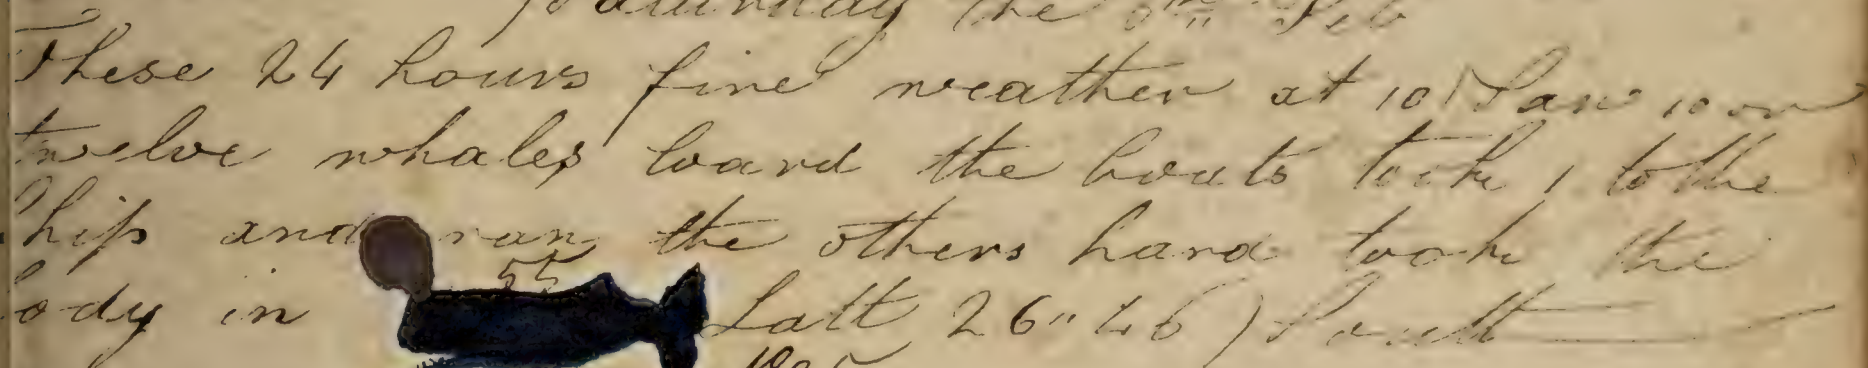 Saturday the 8th Feb
These 24 hours fine weather at 10 Saw 10 or
twelve whales loard the boats took 1 to the
Ship and ran the others hard took the
body in 55 Latt 26" 46 South